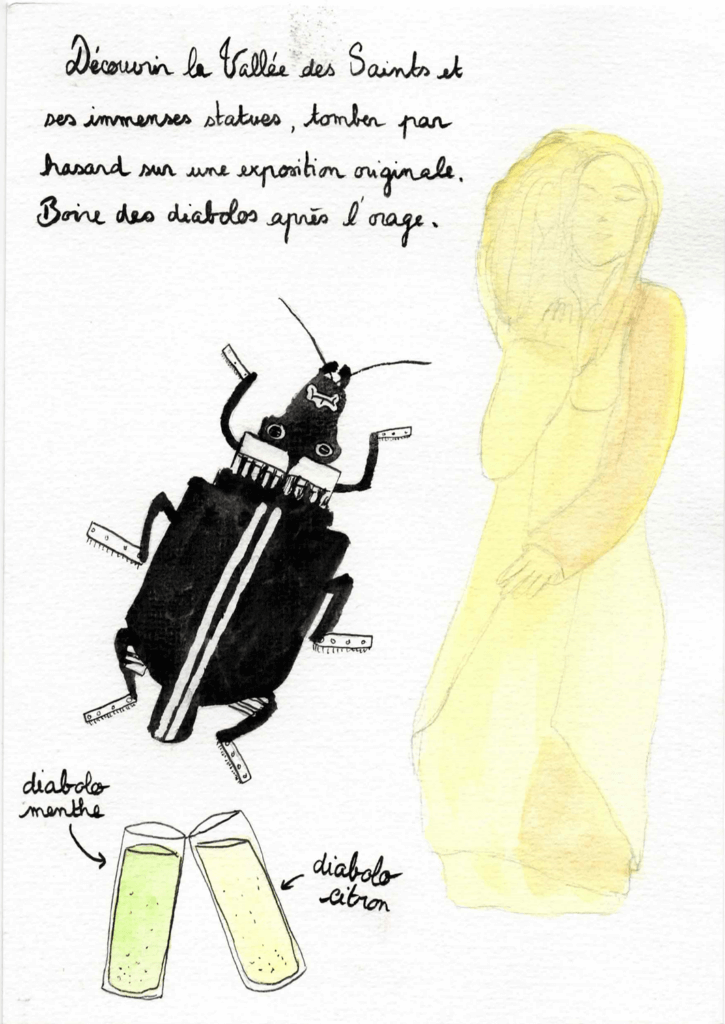 Découvrir la Vallée des Saints et
ses immenses statues, tomber par
hasard sur une exposition originale.
Boire des diabolos après l'orage.
diabolo
menthe
diabolo
citron